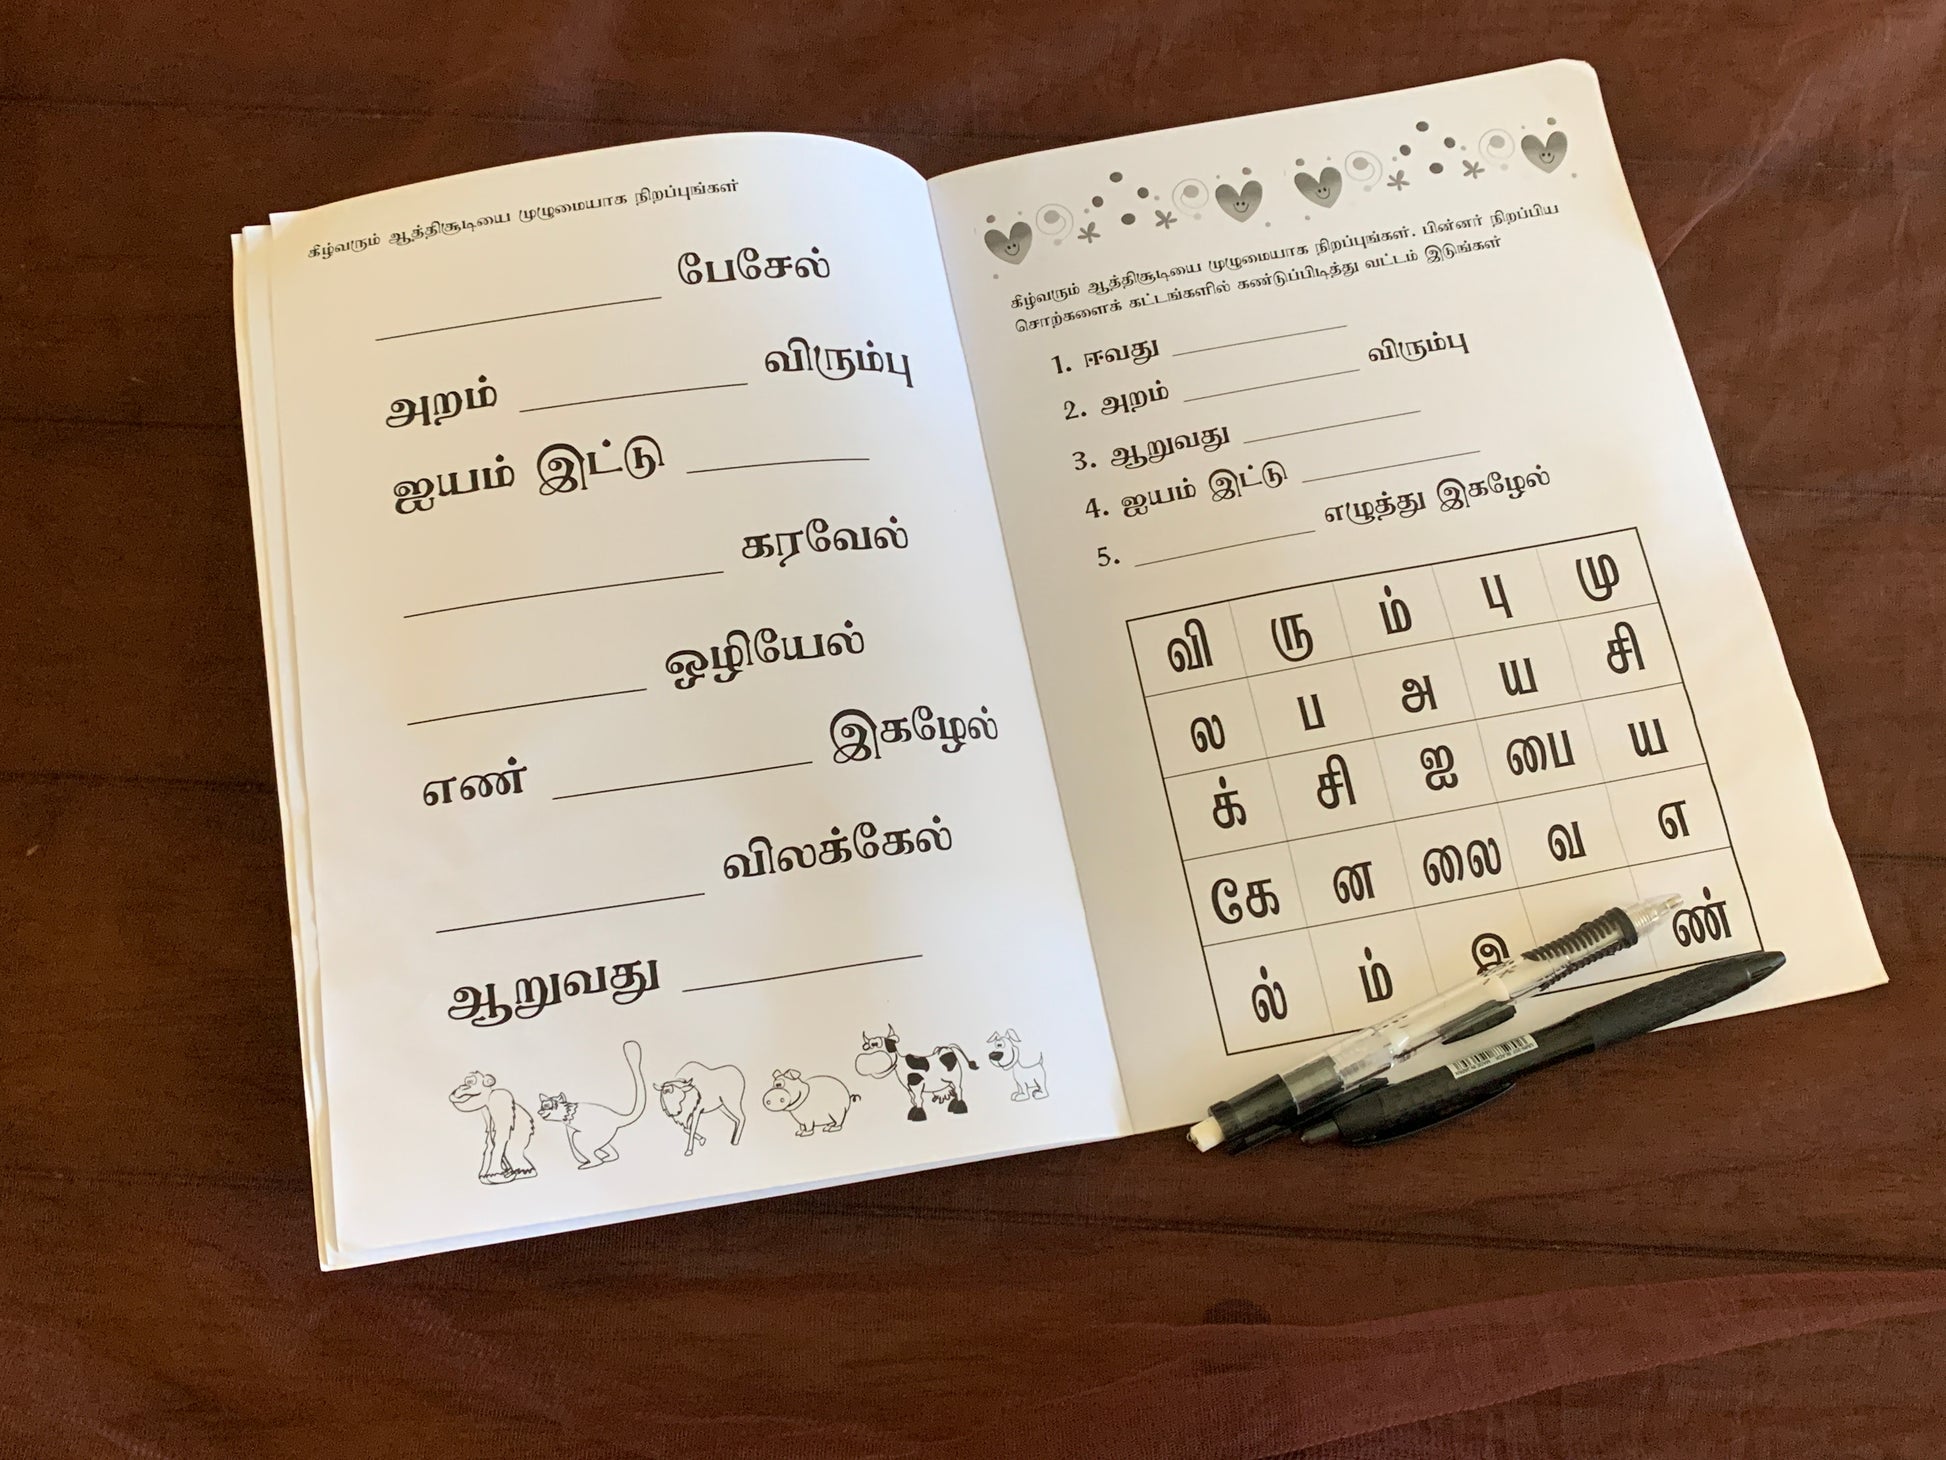 கீழ்வரும் ஆத்திசூடியை முழுமையாக நிறப்புங்கள்
____________ பேசேல்
அறம் ____________ விரும்பு
ஐயம் இட்டு ____________
____________ கரவேல்
____________ ஒழியேல்
எண் ____________ இகழேல்
____________ விலக்கேல்
ஆறுவது ____________
கீழ்வரும் ஆத்திசூடியை முழுமையாக நிறப்புங்கள். பின்னர் நிறப்பிய
சொற்களைக் கட்டங்களில் கண்டுப்பிடித்து வட்டம் இடுங்கள்
1. ஈவது ____________
2. அறம் ____________ விரும்பு
3. ஆறுவது ____________
4. ஐயம் இட்டு ____________
5. ____________ எழுத்து இகழேல்
வி ரு ம் பு மு
ல ப அ ய சி
க் சி ஐ பை ய
கே ன லை வ எ
ல் ம் இ ண்